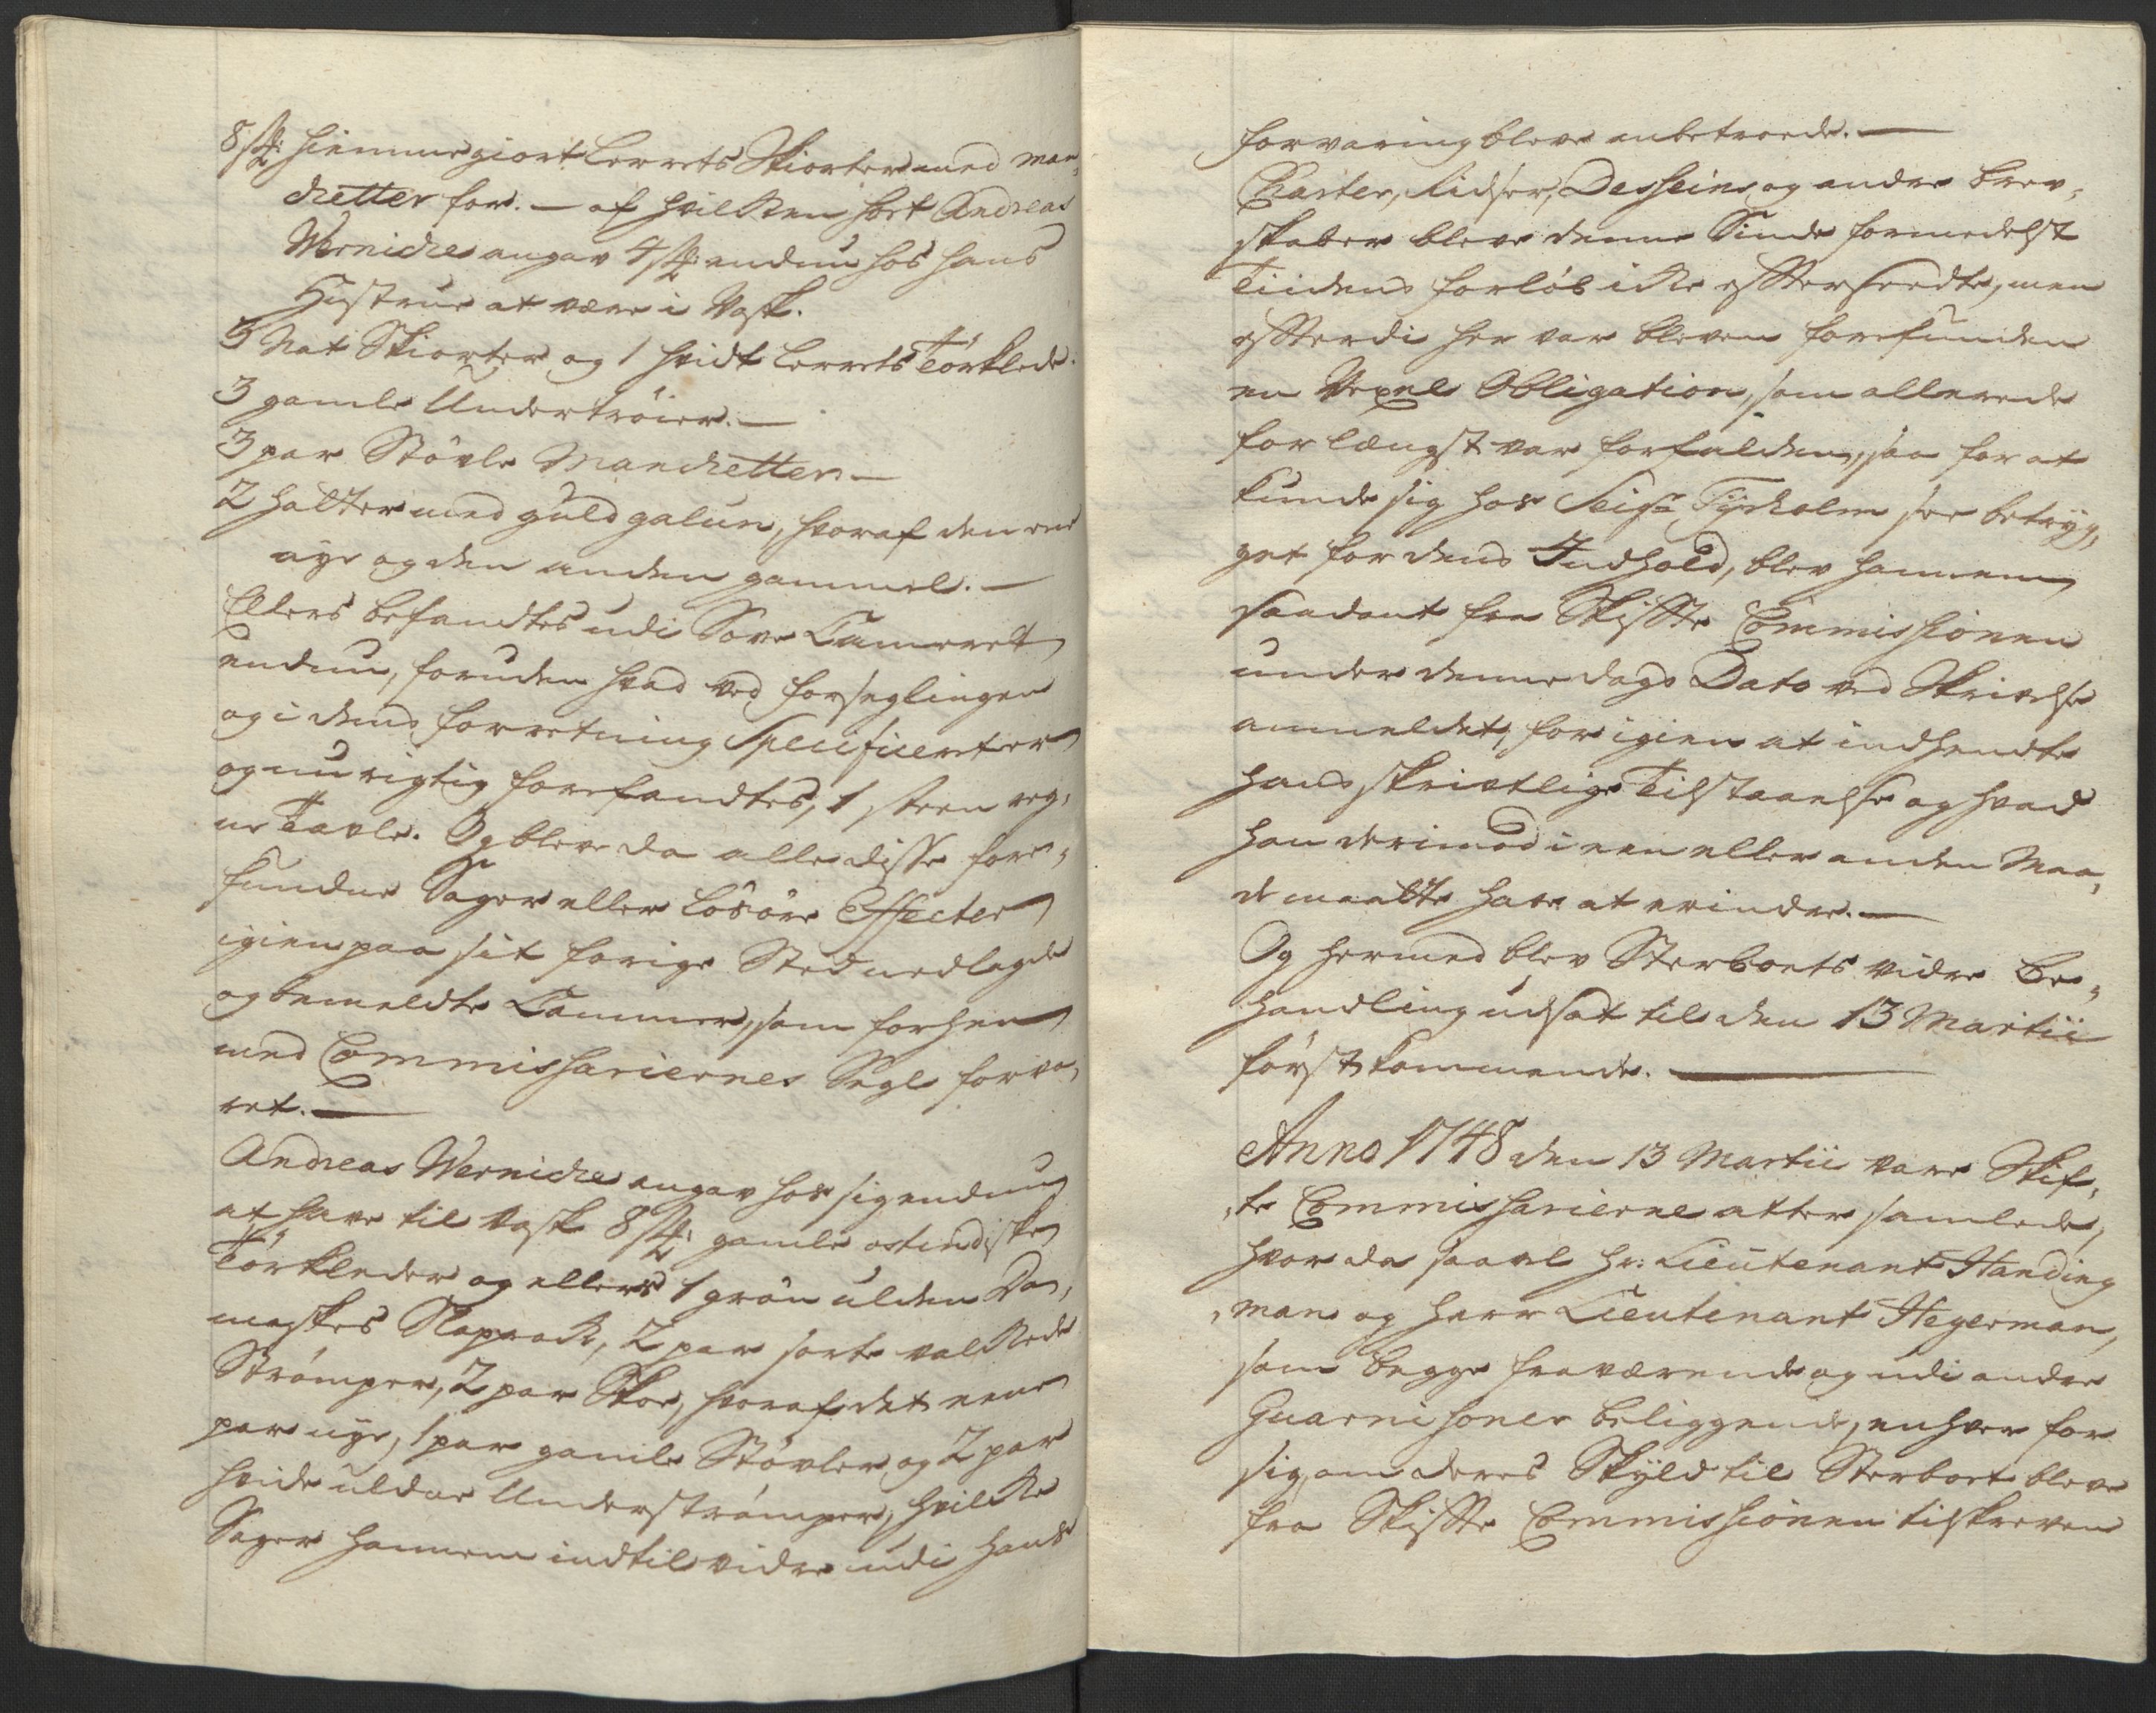 8 st: Hiemmegiort Lerrets Skiorter med man¬
chetter for. — af hvilken sort Andreas
Werniche angav 4 st: endnu hos hans
Hustrue at være i Vask.
5 Nat Skiorter og 1 hvidt Lerrets Törklede.
3 gamle Undertröier. —
3 par Stövle Manchetter —
2 Hatter med guld galun, hvoraf den ene
nye og den anden gammel. —
Ellers befandtes udi Sove Cammeret
endnu, foruden hvad ved forseglingen
og i dens forretning Specificeret er
og nu rigtig forefandtes, 1 steen reg¬
ne Tavle. Og bleve da alle disse fore¬
fundne Sager eller Lösöre Effecter
igien paa sit forige Sted nedlagde
og bemeldte Cammer, som forhen
med Commissariernes Segl forva¬
ret. —
Andreas Werniche angav hos sig endnu
at have til Vask 8 st: gamle ostindiske
Törkleder og ellers 1 grön ulden Da¬
maskes Slaprok, 2 par sorte valkede
Strömper, 2 par Skoe, hvoraf det eene
par nye, 1 par gamle Stövler og 2 par
hvide uldne Underströmper, hvilke
Sager hannem indtil vidre udi hans
forvaring bleve anbetroede. —
Charter, Ridser, Desseins og andre brev¬
skaber bleve denne Sinde formedelst
Tiidens forlöb ikke efterseedte, men
efterdi her var bleven forefunden
en Vexel Obligation, som allerede
for længst var forfalden, saa for at
kunde sig hos Seigr Tyrholm see betryg¬
get for dens Indhold, blev hannem
saadant fra Skifte Commissionen
under denne dags Dato ved Skrivelse
anmeldet, for igien at indhendte
hans skrivtlige Tilstaaelse og hvad
han derimod i een eller anden Maa¬
de maatte have at erindre. —
Og hermed blev Sterboets vidre Be¬
handling udsat til den 13 Martii
förstkommende. —
Anno 1748 den 13 Martii vare Skif¬
te Commissarierne atter samlede,
hvor da saavel Hr: Lieutenant Standing
man og Herr Lieutenant Hegerman,
som begge fraværende og udi andre
Guarnisoner beliggende, enhver for
sig, om deres Skyld til Sterboet bleve
fra Skifte Commissionen tilskreven